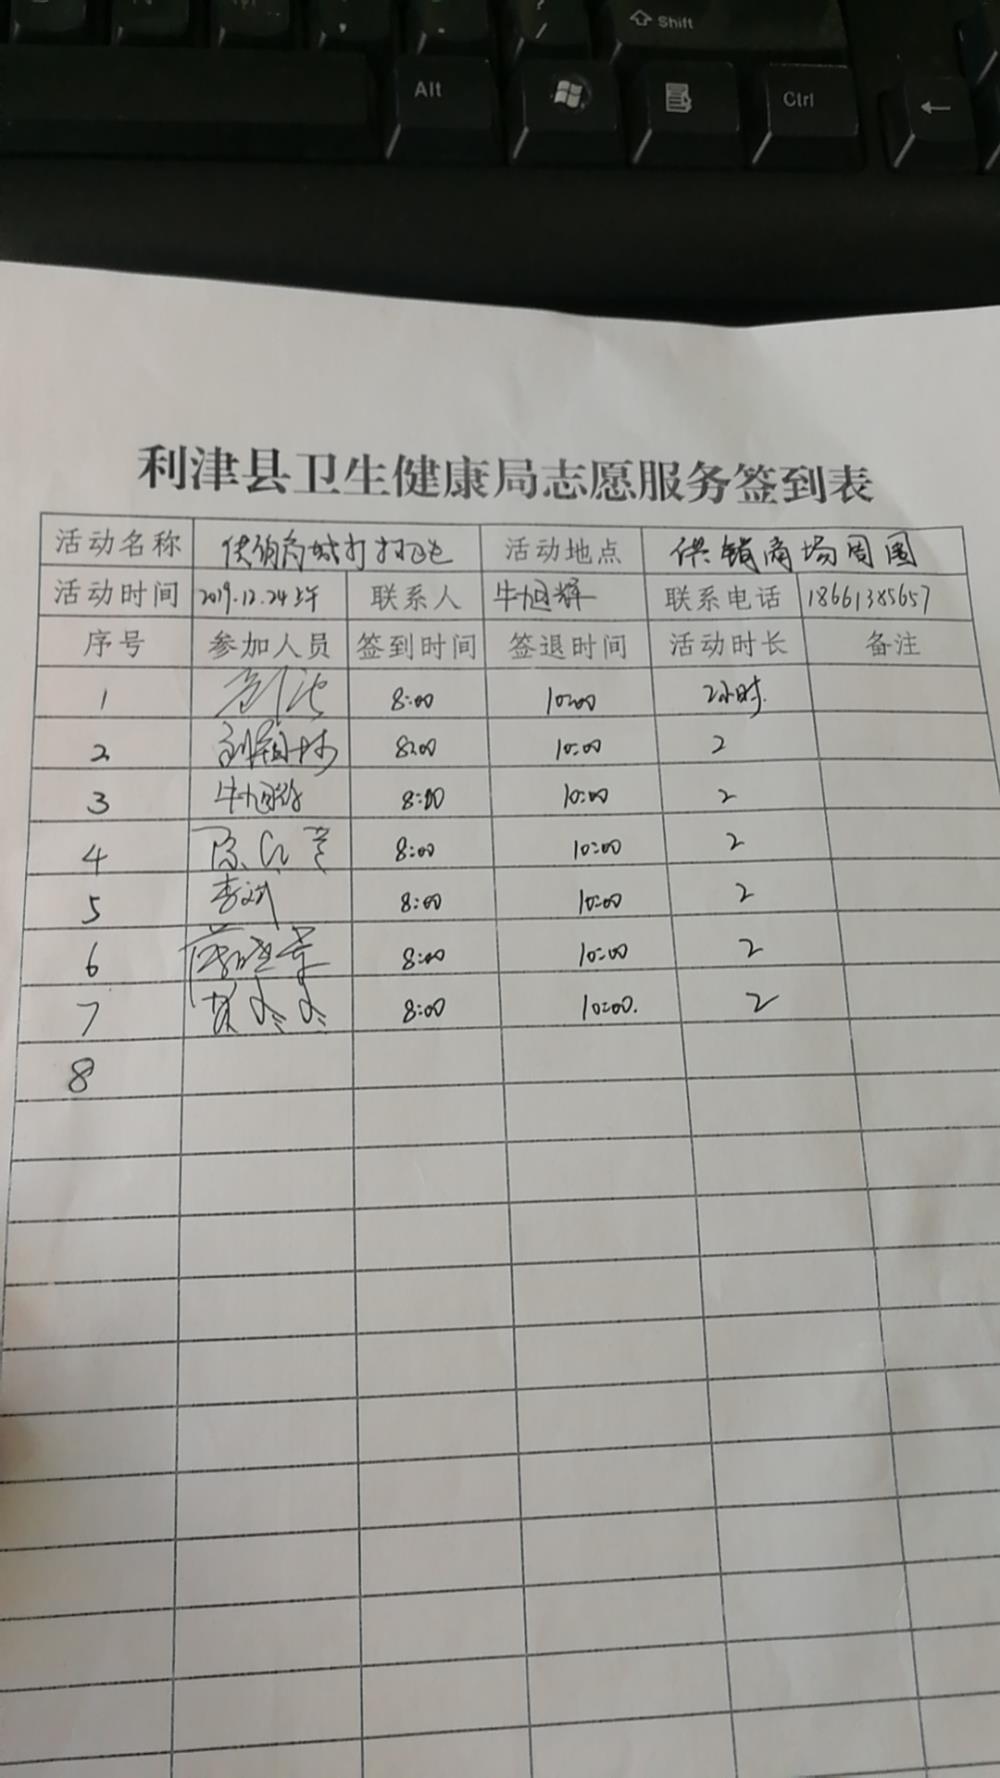 Shift
Alt
Ctrl
利津县卫生健康局志愿服务签到表
活动名称 供销商城打扫卫生 活动地点 供销商场周围
活动时间 2019.12.24上午 联系人 牛旭辉 联系电话 18661385657
序号 参加人员 签到时间 签退时间 活动时长 备注
1 8:00 10:00 2小时
2 8:00 10:00 2
3 牛旭辉 8:00 10:00 2
4 8:00 10:00 2
5 李斌 8:00 10:00 2
6 8:00 10:00 2
7 8:00 10:00. 2
8